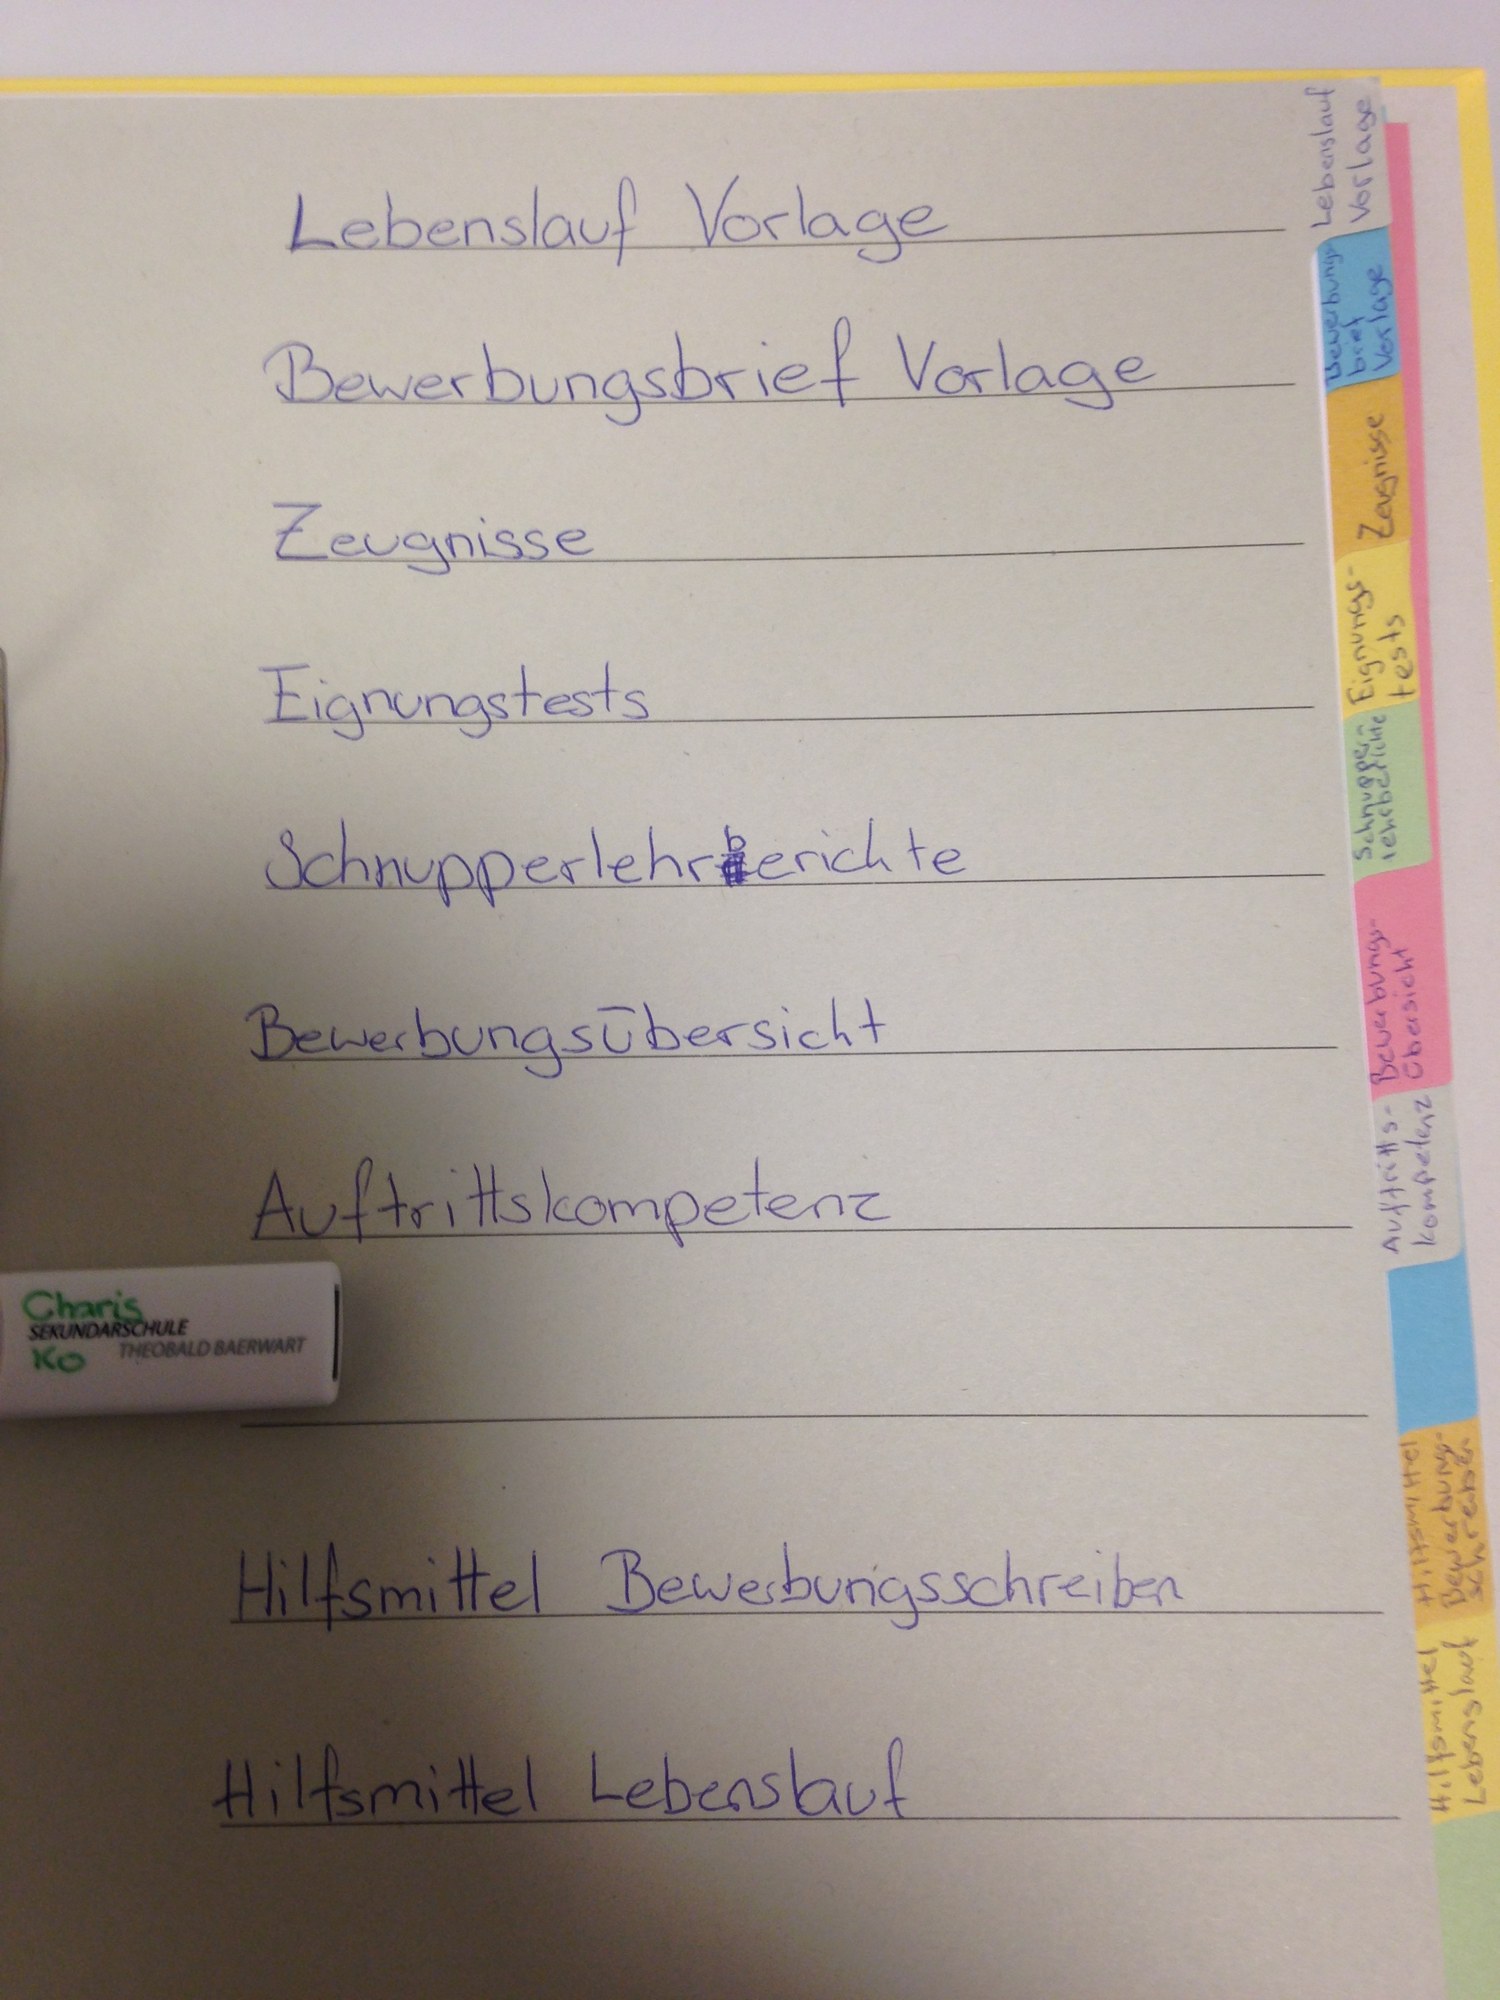 Lebenslauf Vorlage
Bewerbungsbrief Vorlage
Zeugnisse
Eignungstests
Schnupperlehrberichte
Bewerbungsübersicht
Auftrittskompetenz
Hilfsmittel Bewerbungsschreiben
Hilfsmittel Lebenslauf
Charis
SEKUNDARSCHULE
THEOBALD BAERWART
Ko
Lebenslauf
Vorlage
Bewerbungs
brief
Vorlage
Zeugnisse
Eignungs-
tests
Schnupper-
lehrberichte
Bewerbungs-
übersicht
Auftritts-
kompetenz
Hilfsmittel
Bewerbung-
schreiben
Hilfsmittel
Lebenslauf